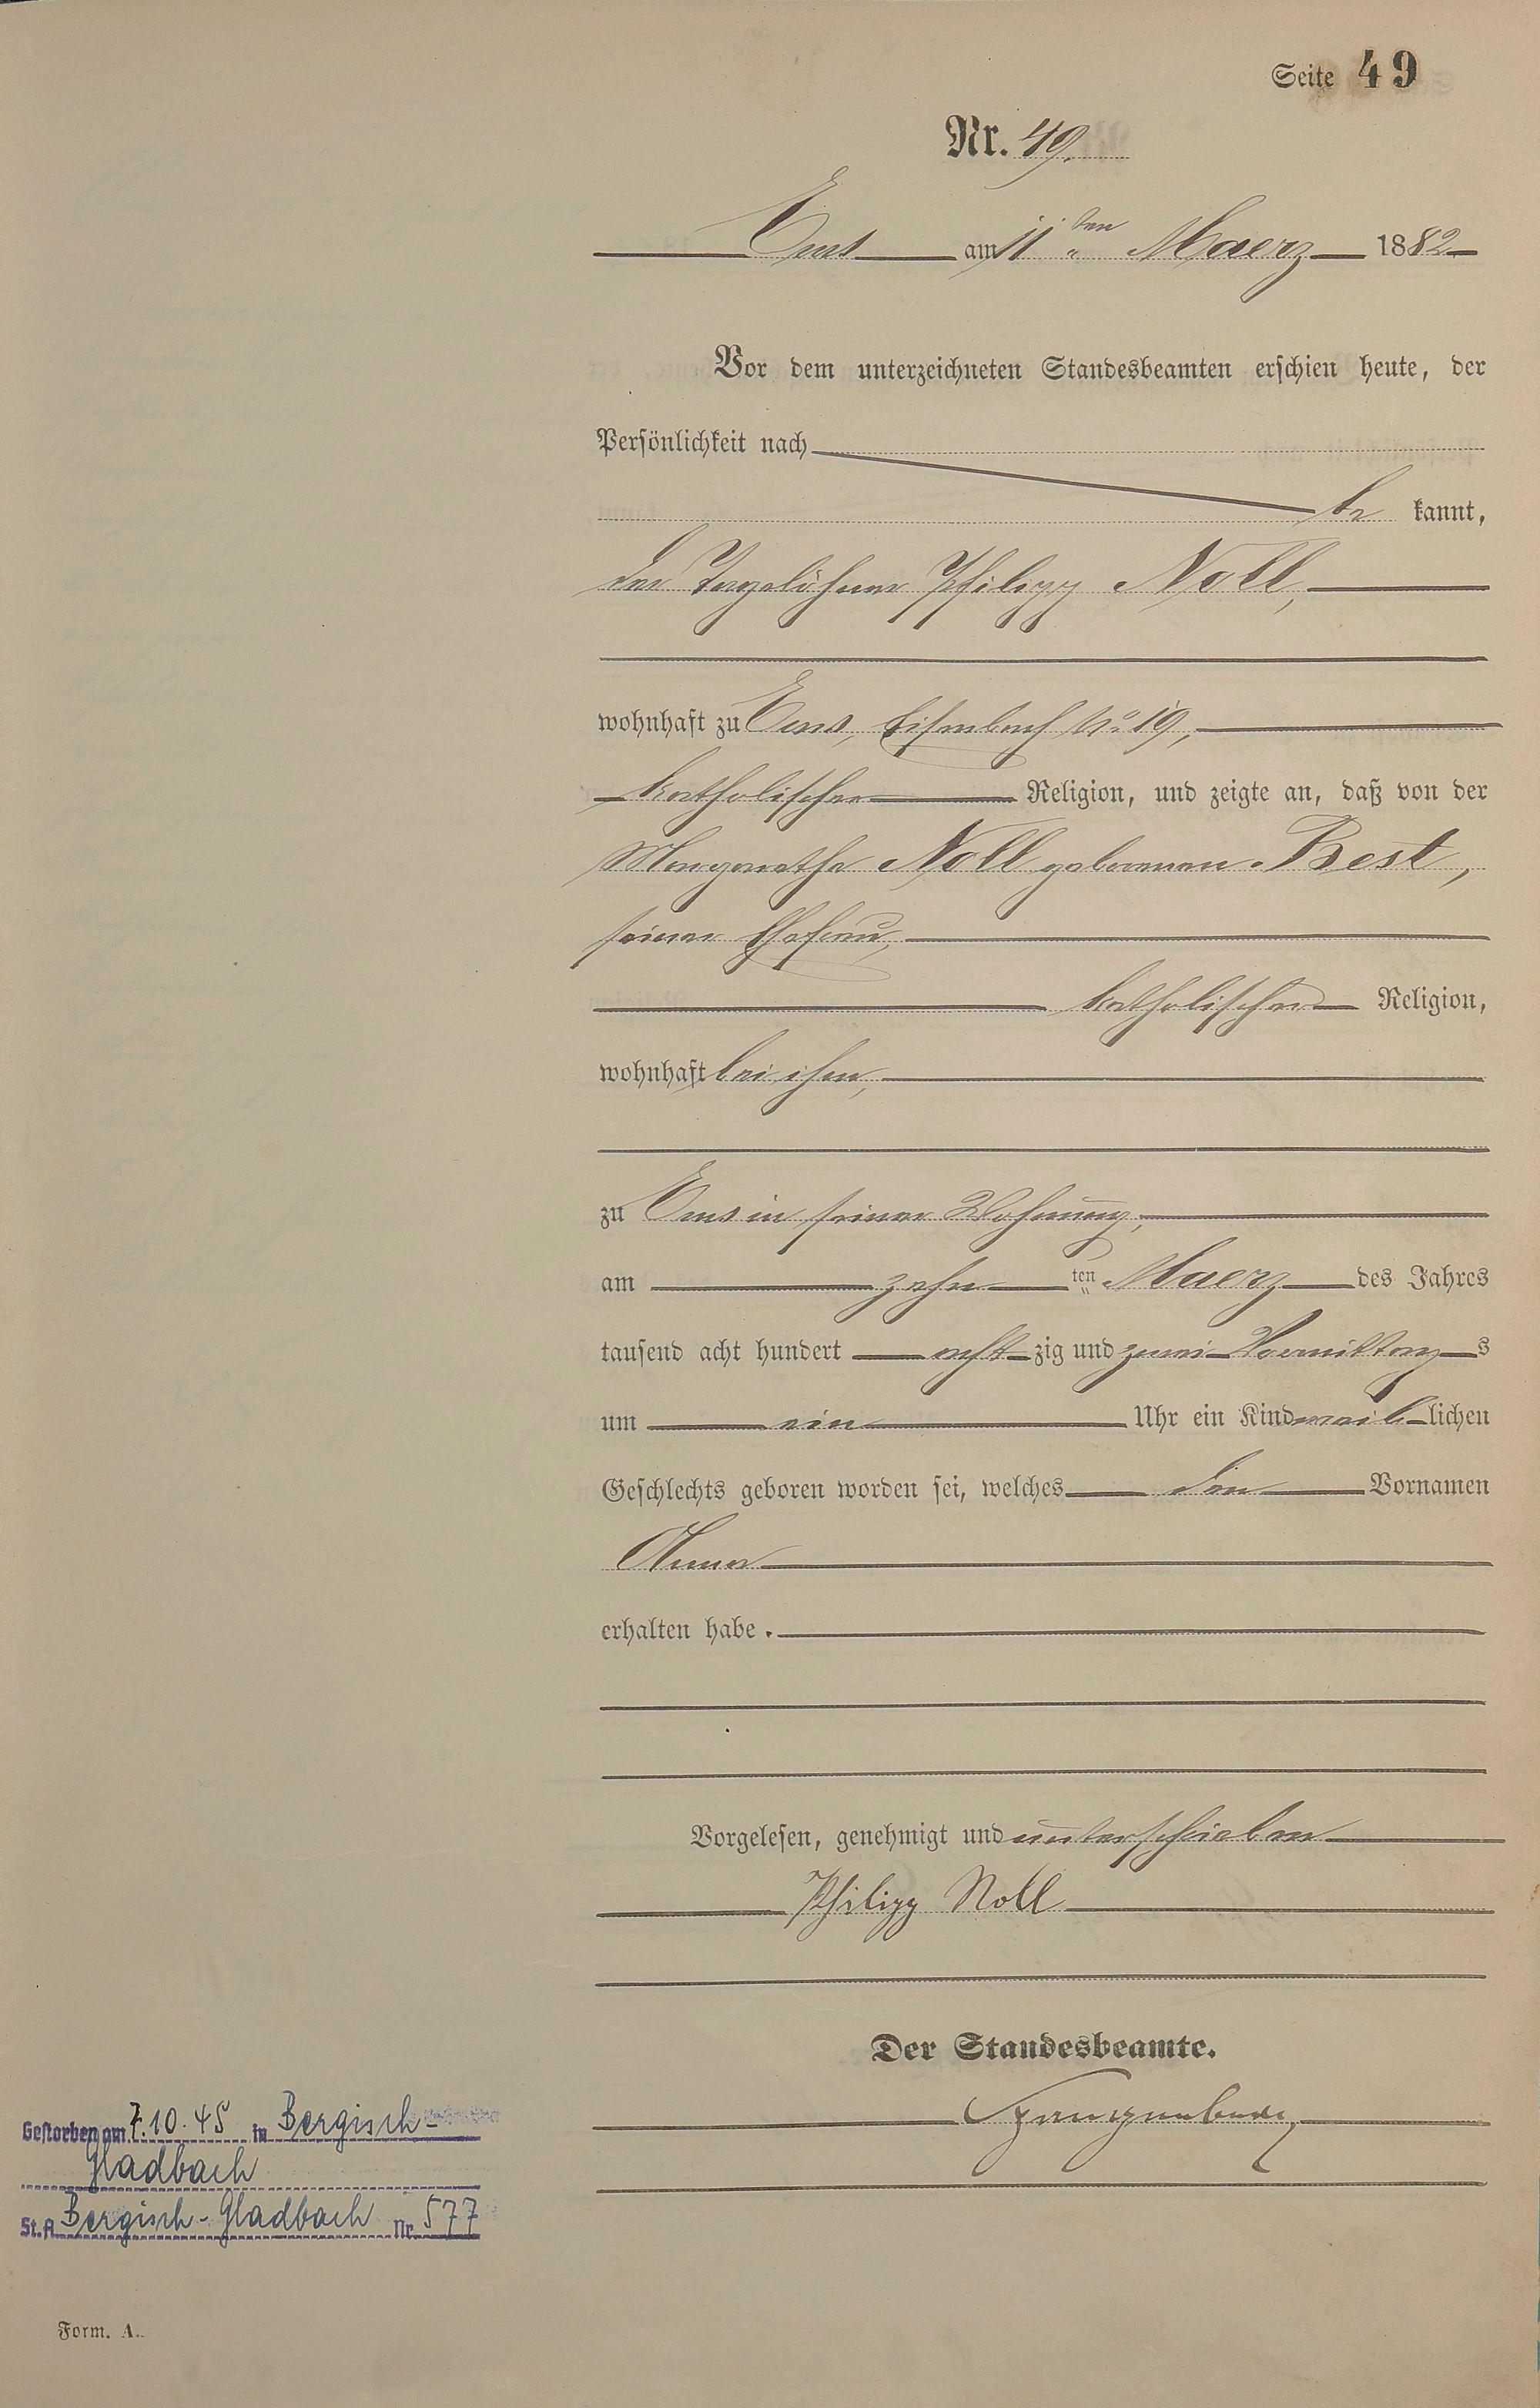 Seite 49
Nr. 49.
Ems am 11ten Maerz 1882
Vor dem unterzeichneten Standesbeamten erschien heute, der
Persönlichkeit nach
be kannt,
der Tagelöhner Philipp Noll,
wohnhaft zu Ems, Eisenbach No 19,
katholischer Religion, und zeigte an, daß von der
Margaretha Noll geborenen Best,
seiner Ehefrau,
katholischer Religion,
wohnhaft bei ihm,
zu Ems in seiner Wohnung,
am zehn ten Maerz des Jahres
tausend acht hundert acht zig und zwei Vormittag s
um ein Uhr ein Kind weib lichen
Geschlechts geboren worden sei, welches den Vornamen
Anna
erhalten habe.
Vorgelesen, genehmigt und unterschrieben
Philipp Noll
Der Standesbeamte.
Gestorben am 7.10.45 in Bergisch-
Gladbach
St.A. Bergisch-Gladbach Nr. 577
Form. A.